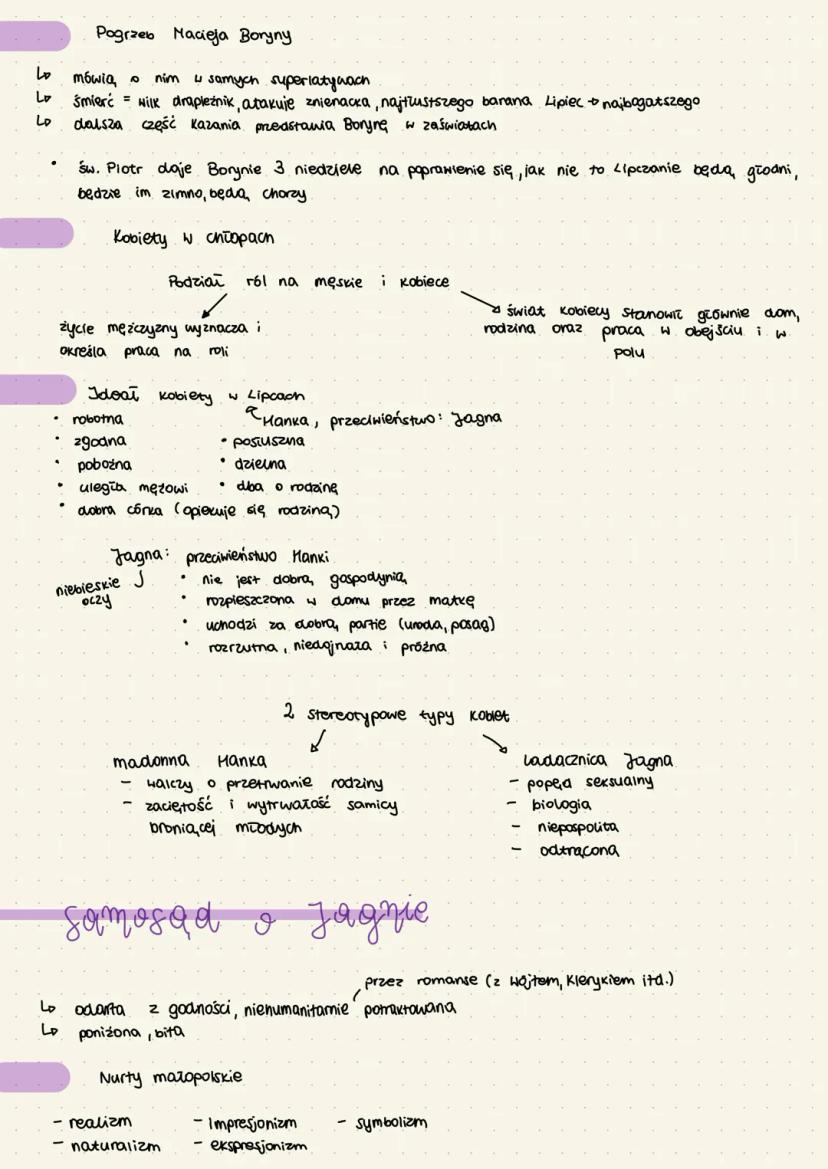 Pogrzeb Macieja Boryny
↳ mówią o nim w samych superlatywach
↳ śmierć = wilk drapieżnik, atakuje znienacka, najtłustszego barana Lipiec → najbogatszego
↳ dalsza część kazania przedstawia Borynę w zaświatach
• św. Piotr daje Borynie 3 niedziele na poprawienie się, jak nie to Lipczanie będą głodni,
będzie im zimno, będą chorzy
Kobiety w chłopach
Podział ról na męskie i kobiece
życie mężczyzny wyznacza i
określa praca na roli
świat kobiecy stanowił głównie dom,
rodzina oraz praca w obejściu i w
polu
Ideał kobiety w Lipcach
Hanka, przeciwieństwo: Jagna
• robotna
• zgodna
• pobożna
• uległa mężowi
• dobra córka (opiekuje się rodziną)
• posłuszna
• dzielna
• dba o rodzinę
Jagna: przeciwieństwo Hanki
niebieskie
oczy
• nie jest dobrą gospodynią
• rozpieszczona w domu przez matkę
• uchodzi za dobrą partię (uroda, posag)
• rozrzutna, niedojrzała i próżna
2 stereotypowe typy kobiet
madonna Hanka
– walczy o przetrwanie rodziny
– zaciętość i wytrwałość samicy
broniącej młodych
ladacznica Jagna
– popęd seksualny
– biologia
– niepospolita
– odtrącona
samosąd o Jagnie
przez romanse (z wójtem, klerykiem itd.)
↳ odarta z godności, niehumanitarnie potraktowana
↳ poniżona, bita
Nurty małopolskie
– realizm – Impresjonizm – symbolizm
– naturalizm – ekspresjonizm